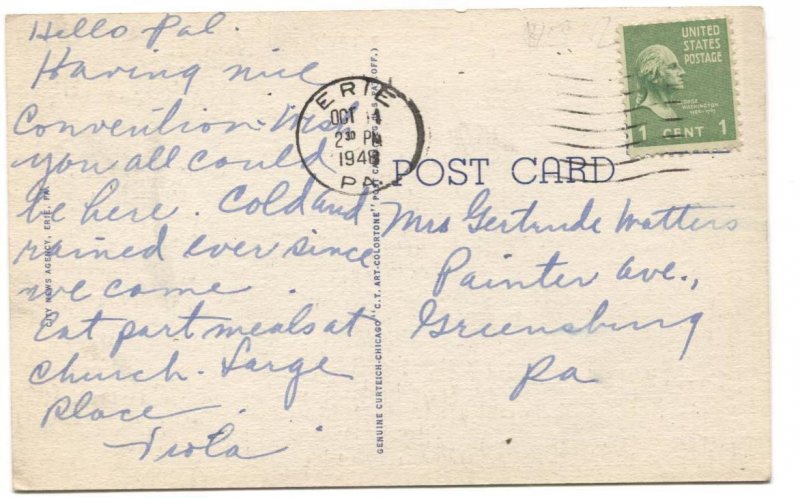 Hello Pal.
Having nice
Convention. Wish
you all could
be here. Cold and
rained ever since
we came.
Eat part meals at
church. Large
place.
Viola
CITY NEWS AGENCY, ERIE, PA.
GENUINE CURTEICH-CHICAGO "C.T. ART-COLORTONE" POST CARD (REG. U.S. PAT. OFF.)
ERIE
OCT
2 30 PM
1948
PA.
UNITED
STATES
POSTAGE
GEORGE
WASHINGTON
1 CENT 1
POST CARD
Mrs Gertrude Watters
Painter Ave.,
Greensburg
Pa